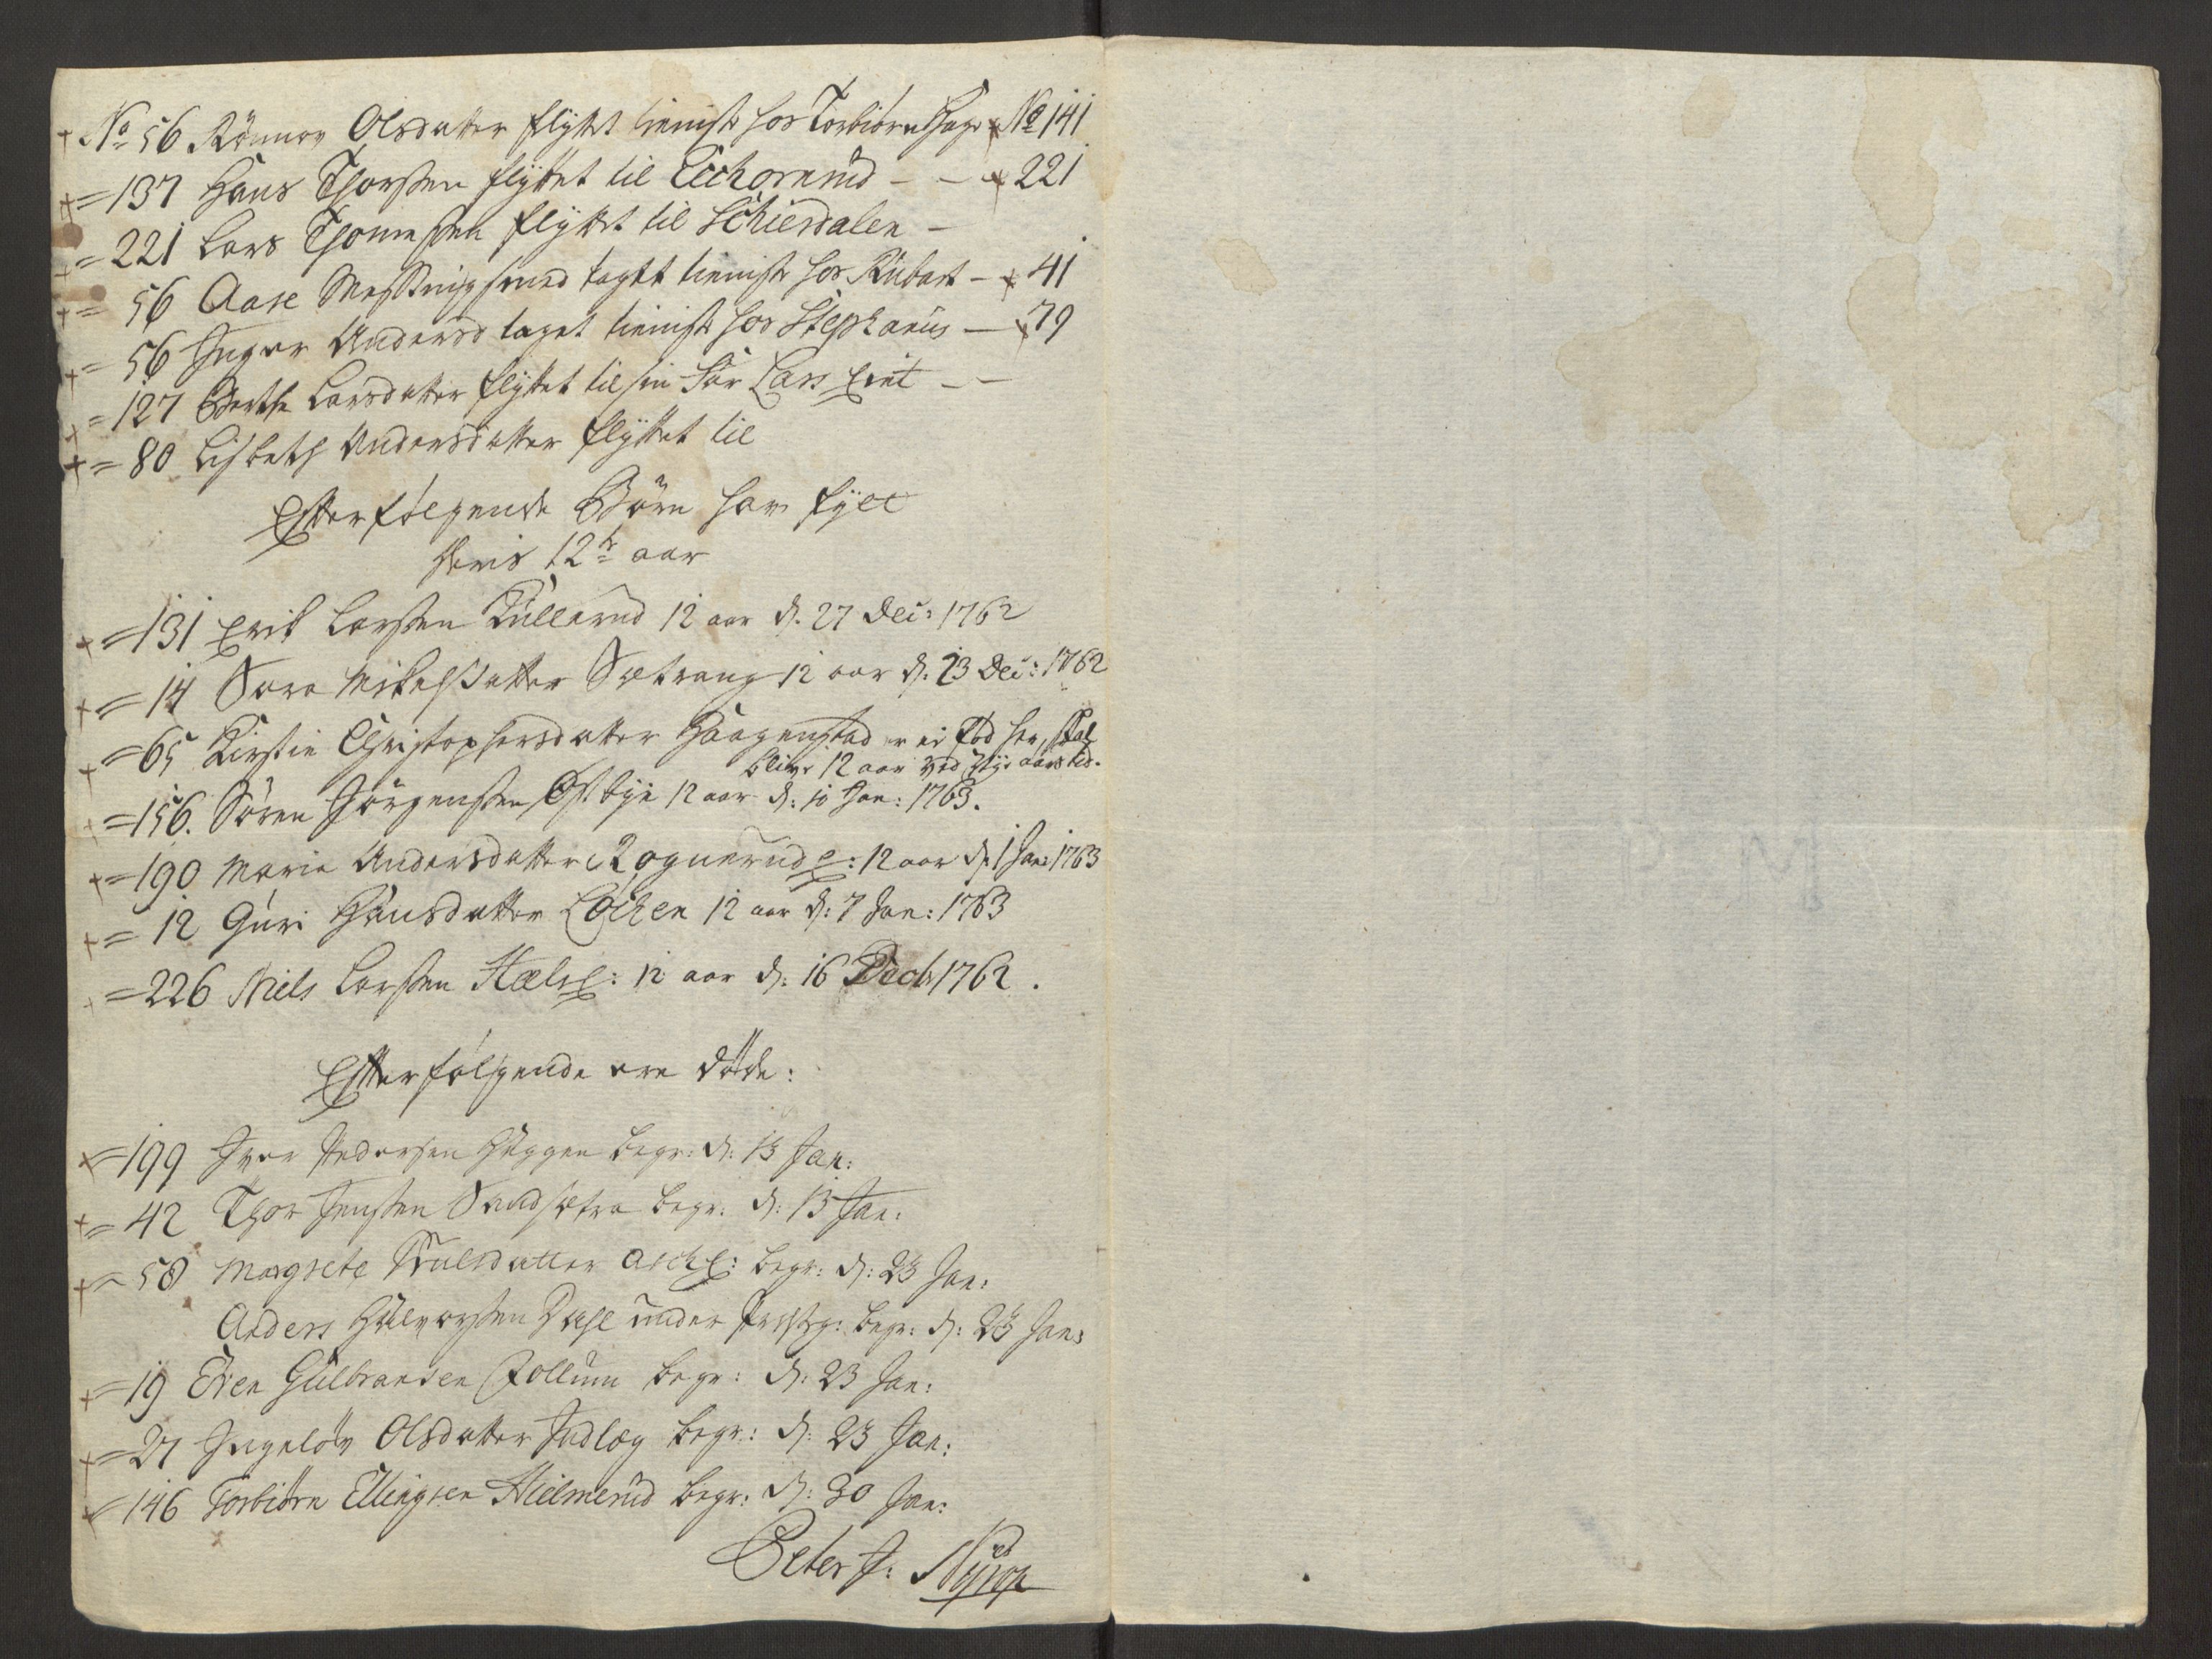 + No 56 Rönnov Olsdatter flytet tieniste hos Torbiörn Hage + No 141
+ = 137 Hans Thorsen flyttet til Eichornrud - - + 221
+ = 221 Lars Thomesen flyttet til Schierdalen -
+ = 56 Aase Messingsmed taget tieniste hos Rubart - + 41
+ = 56 Inger Andersd taget tieniste hos Stephanus - + 79
+ = 127 Berthe Larsdatter flyttet til sin Far Lars - -
+ = 80 Lisbeth Andersdatter flyttet til
Efterfölgende Börn har fylt
deris 12te aar
+ = 131 Erik Larsen Kullerud 12 aar d. 27 Dec: 1762
+ = 14 Sara Mikelsdatter Sætrang 12 aar d. 23 Dec: 1762
+ = 65 Kirstin Christophersdatter Haagenstad er ei föd her, skal
blive 12 aar ved Nyt aars tid.
+ = 156. Sören Jörgensen Östbye 12 aar d: 10 Jan: 1763.
+ = 190 Marie Andersdatter Rognerud E: 12 aar d. 1 Jan: 1763
+ = 12 Guri Hansdatter Löchen 12 aar d: 7 Jan: 1763
+ = 226 Niels Larsen Hæls E: 12 aar d: 16 Dech 1762.
Efterfölgende ere döde:
+ = 199 Iver Pedersen Huggen begr: d: 13 Jan:
+ = 42 Thor Jensen Sandsætra begr: d: 13 Jan:
+ = 58 Margrete Truelsdatter Ask E: begr: d: 23 Jan:
Anders Halvorsen Dahl under Prestg: begr: d: 23 Jan:
+ = 19 Even Gulbransen Follum begr: d: 23 Jan:
+ = 27 Ingelöv Olsdatter Indlæg begr: d: 23 Jan:
+ = 146 Torbiörn Ellingsen Hielmerud begr: d: 30 Jan:
Peter J: Nyrop